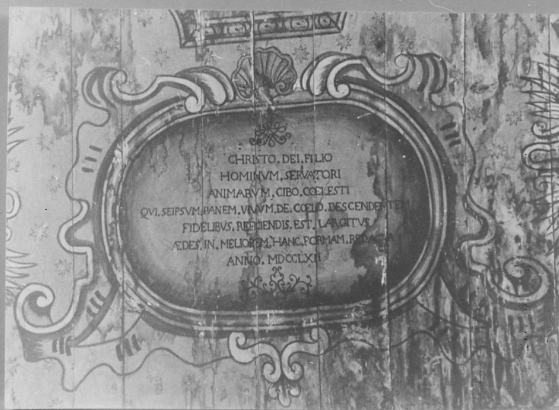 CHRISTO, DEI, FILIO
HOMINVM, SERVATORI
ANIMARVM, CIBO, CŒLESTI
QVI, SEIPSVM, PANEM, VIVUM, DE, CŒLO, DESCENDENTEM
FIDELIBVS, REFICIENDIS, EST, LARGITVS
ÆDES, IN, MELIOREM, HANC, FORMAM, REDACTA
ANNO, MDCCLXII